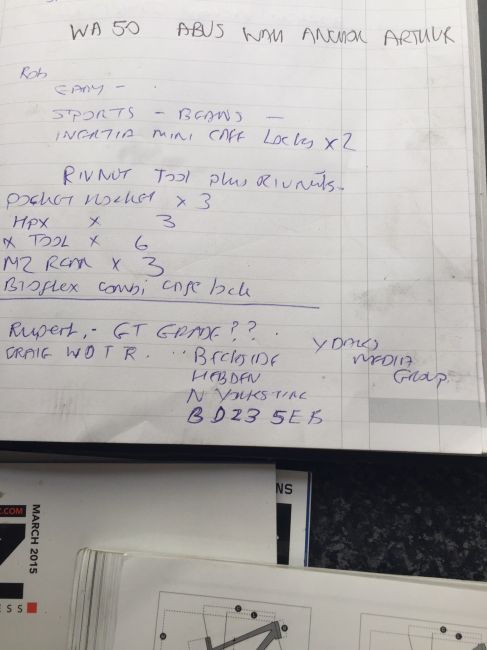 WA 50 ABUS WALL ANCHOR ARTHUR
Rob
EBAY -
SPORTS - BEANS -
INERTIA MINI CAFF Locks x 2
RIVNUT TOOL plus RIVNUTS.
Pocket Rocket x 3
HPX x 3
X TOOL x 6
M2 x 3
Bioflex combi cafe lock
Rupert, - GT GRADE??.
CRAIG WOTR. BECKSIDE
HEBDEN
N YORKSHIRE
BD23 5EB
MEDIA
Group.
.COM
MARCH 2015
NS
ESS